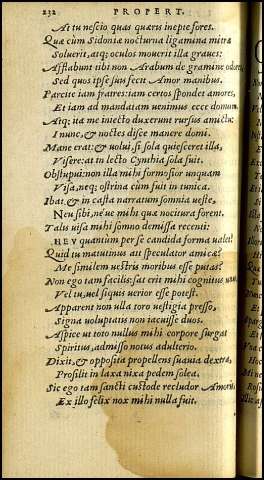 232 PROPERT.
At tu nescio quas quæris inepte fores.
Quæ cum Sidoniæ nocturna ligamina mitræ
Soluerit, atq; oculos mouerit illa graueis:
Afflabunt tibi non Arabum de gramine odores,
Sed quos ipse suis fecit Amor manibus.
Parcite iam fratres: iam certos spondet amores,
Et iam ad mandatam uenimus ecce domum.
Atq; ita me iniecto duxerunt rursus amictu:
I nunc, & noctes disce manere domi.
Mane erat: & uolui, si sola quiesceret illa,
Visere: at in lecto Cynthia sola fuit.
Obstupui: non illa mihi formosior unquam
Visa, neq; ostrina cum fuit in tunica.
Ibat, & in castæ narratum somnia uestæ,
Neu sibi, neue mihi quæ nocitura forent.
Talis uisa mihi somno demissa recenti:
HEV quantum per se candida forma ualet!
Quid tu matutinus ait speculator amicæ?
Me similem uestris moribus esse putas?
Non ego tam facilis: sat erit mihi cognitus unus
Vel tu, uel siquis uerior esse potest.
Apparent non ulla toro uestigia presso,
Signa uoluptatis non iacuisse duos.
Aspice ut toto nullus mihi corpore surgat
Spiritus, admisso notus adulterio.
Dixit, & opposita propellens suauia dextra,
Prosilit in laxa nixa pedem solea.
Sic ego tam sancti custode recludor Amoris
Ex illo felix nox mihi nulla fuit.